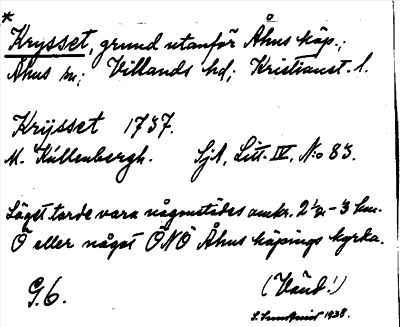 * Krysset, grund utanför Åhus köp.;
Åhus sn; Villands hd; Kristianst. l.
Krysset 1737.
M. Küllenbergh. Sjk, Litt. IV, N:o 83.
Läget torde vara någonstädes omkr. 2 1/2 - 3 km.
Ö eller något ÖNÖ Åhus köpings kyrka.
G.6. (Vänd!)
1938.